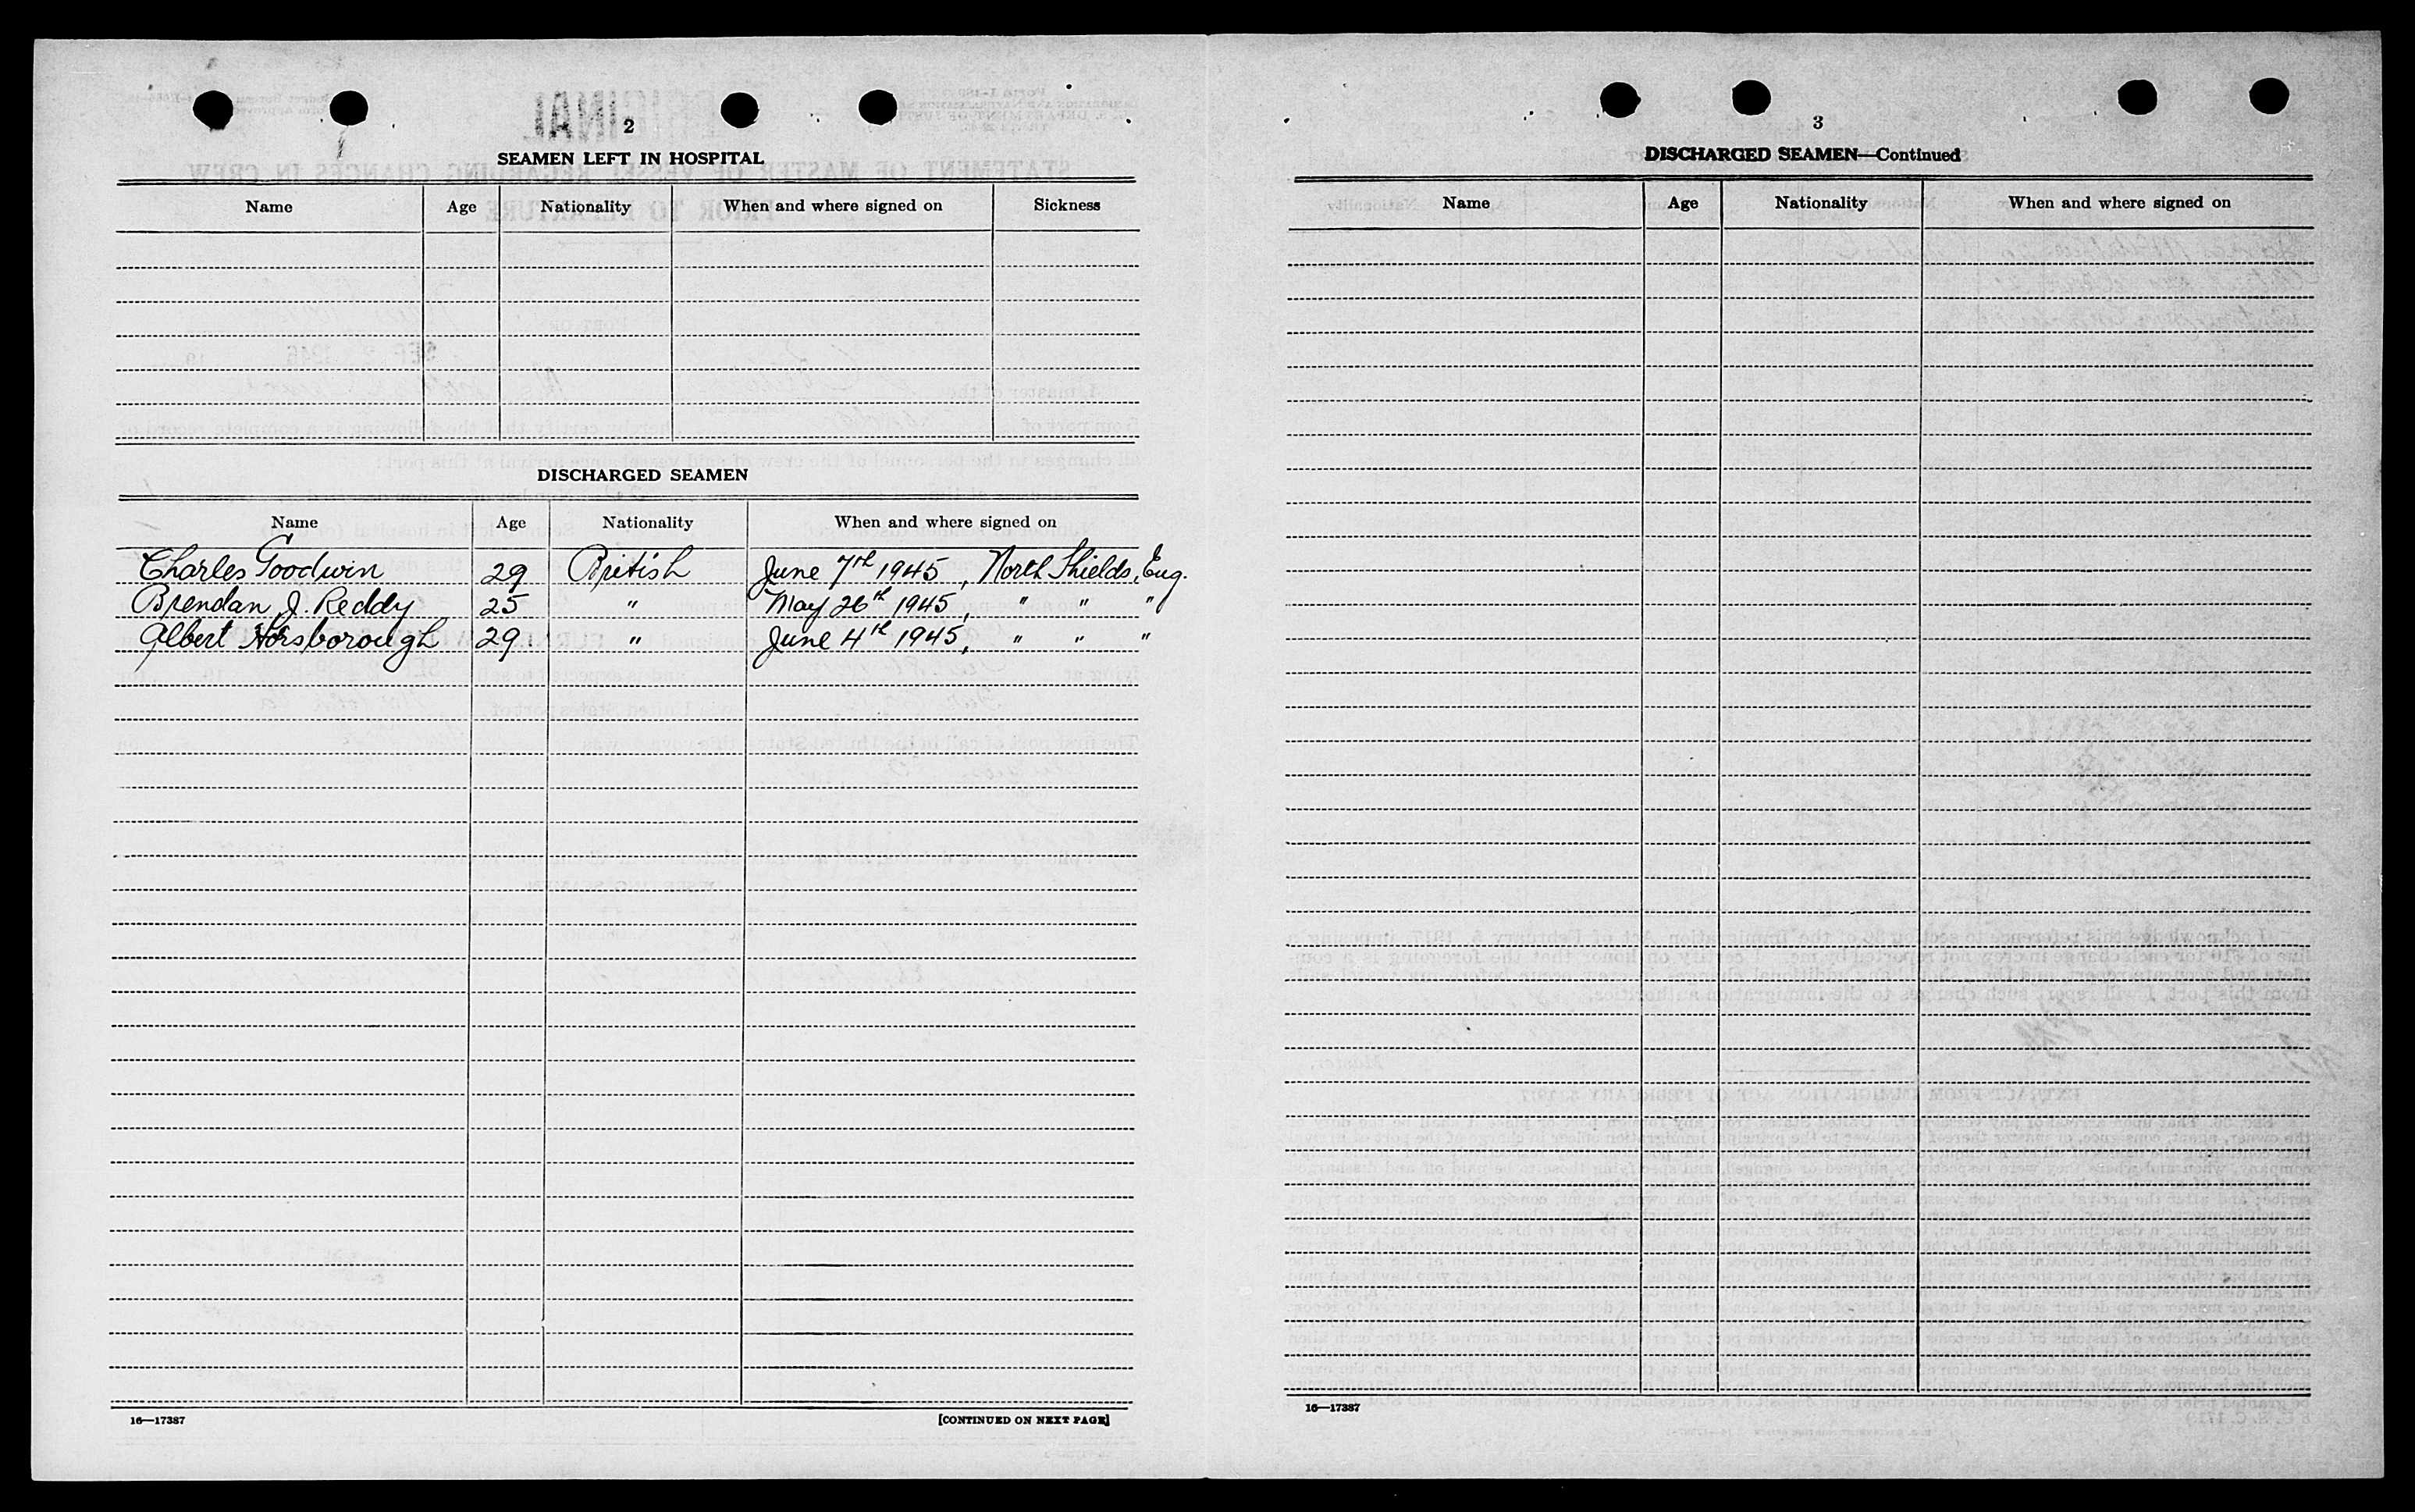 2
SEAMEN LEFT IN HOSPITAL
Name Age Nationality When and where signed on Sickness
DISCHARGED SEAMEN
Name Age Nationality When and where signed on
Charles Goodwin 29 British June 7th 1945, North Shields, Eng.
Brendan J. Reddy 25 " May 26th 1945, " " "
Albert Horsborough 29. " June 4th 1945, " " "
16—17387 [CONTINUED ON NEXT PAGE]
3
DISCHARGED SEAMEN—Continued
Name Age Nationality When and where signed on
16—17387